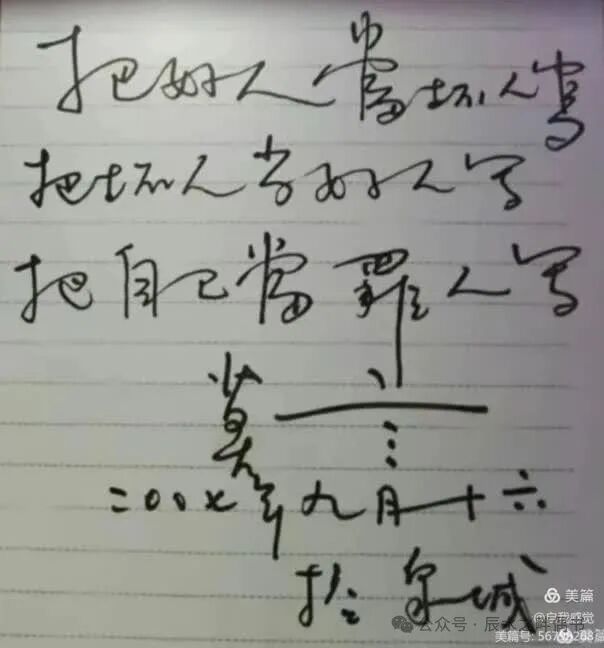 把好人當坏人寫
把坏人当好人写
把自己當罪人写
莫言
二〇〇七年九月十六
于泉城
美篇
@自我感觉
公众号·辰
美篇号:567